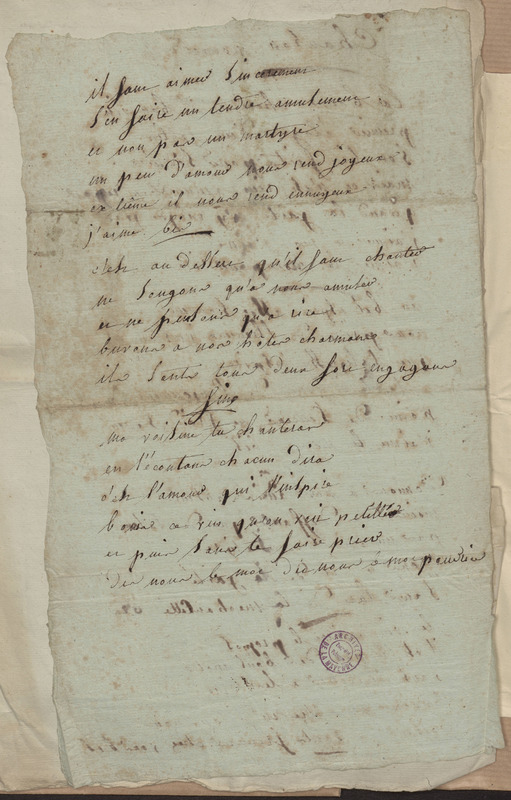 il faut aimer sincerement
s'en faire un tendre amusement
et non pas un martyre
un peu d'amour nous rend joyeux
extrême il nous rend ennuyeux
j'aime bis
c'est au dessert qu'il faut chanter
ne songons qu'a nous amuser
et ne pensons qu'a rire
buvons a nos hôtes charmans
ils sont tous deux fort engageans
fin
ma voisine tu chanteras
en t'écoutant chacun dira
c'est l'amour qui l'inspire
bois ce vin qu'on voit petiller
et puis sans te faire prier
dis nous le mot dis nous le mot pour rire
ARCHIVES
DE LA MAYENNE